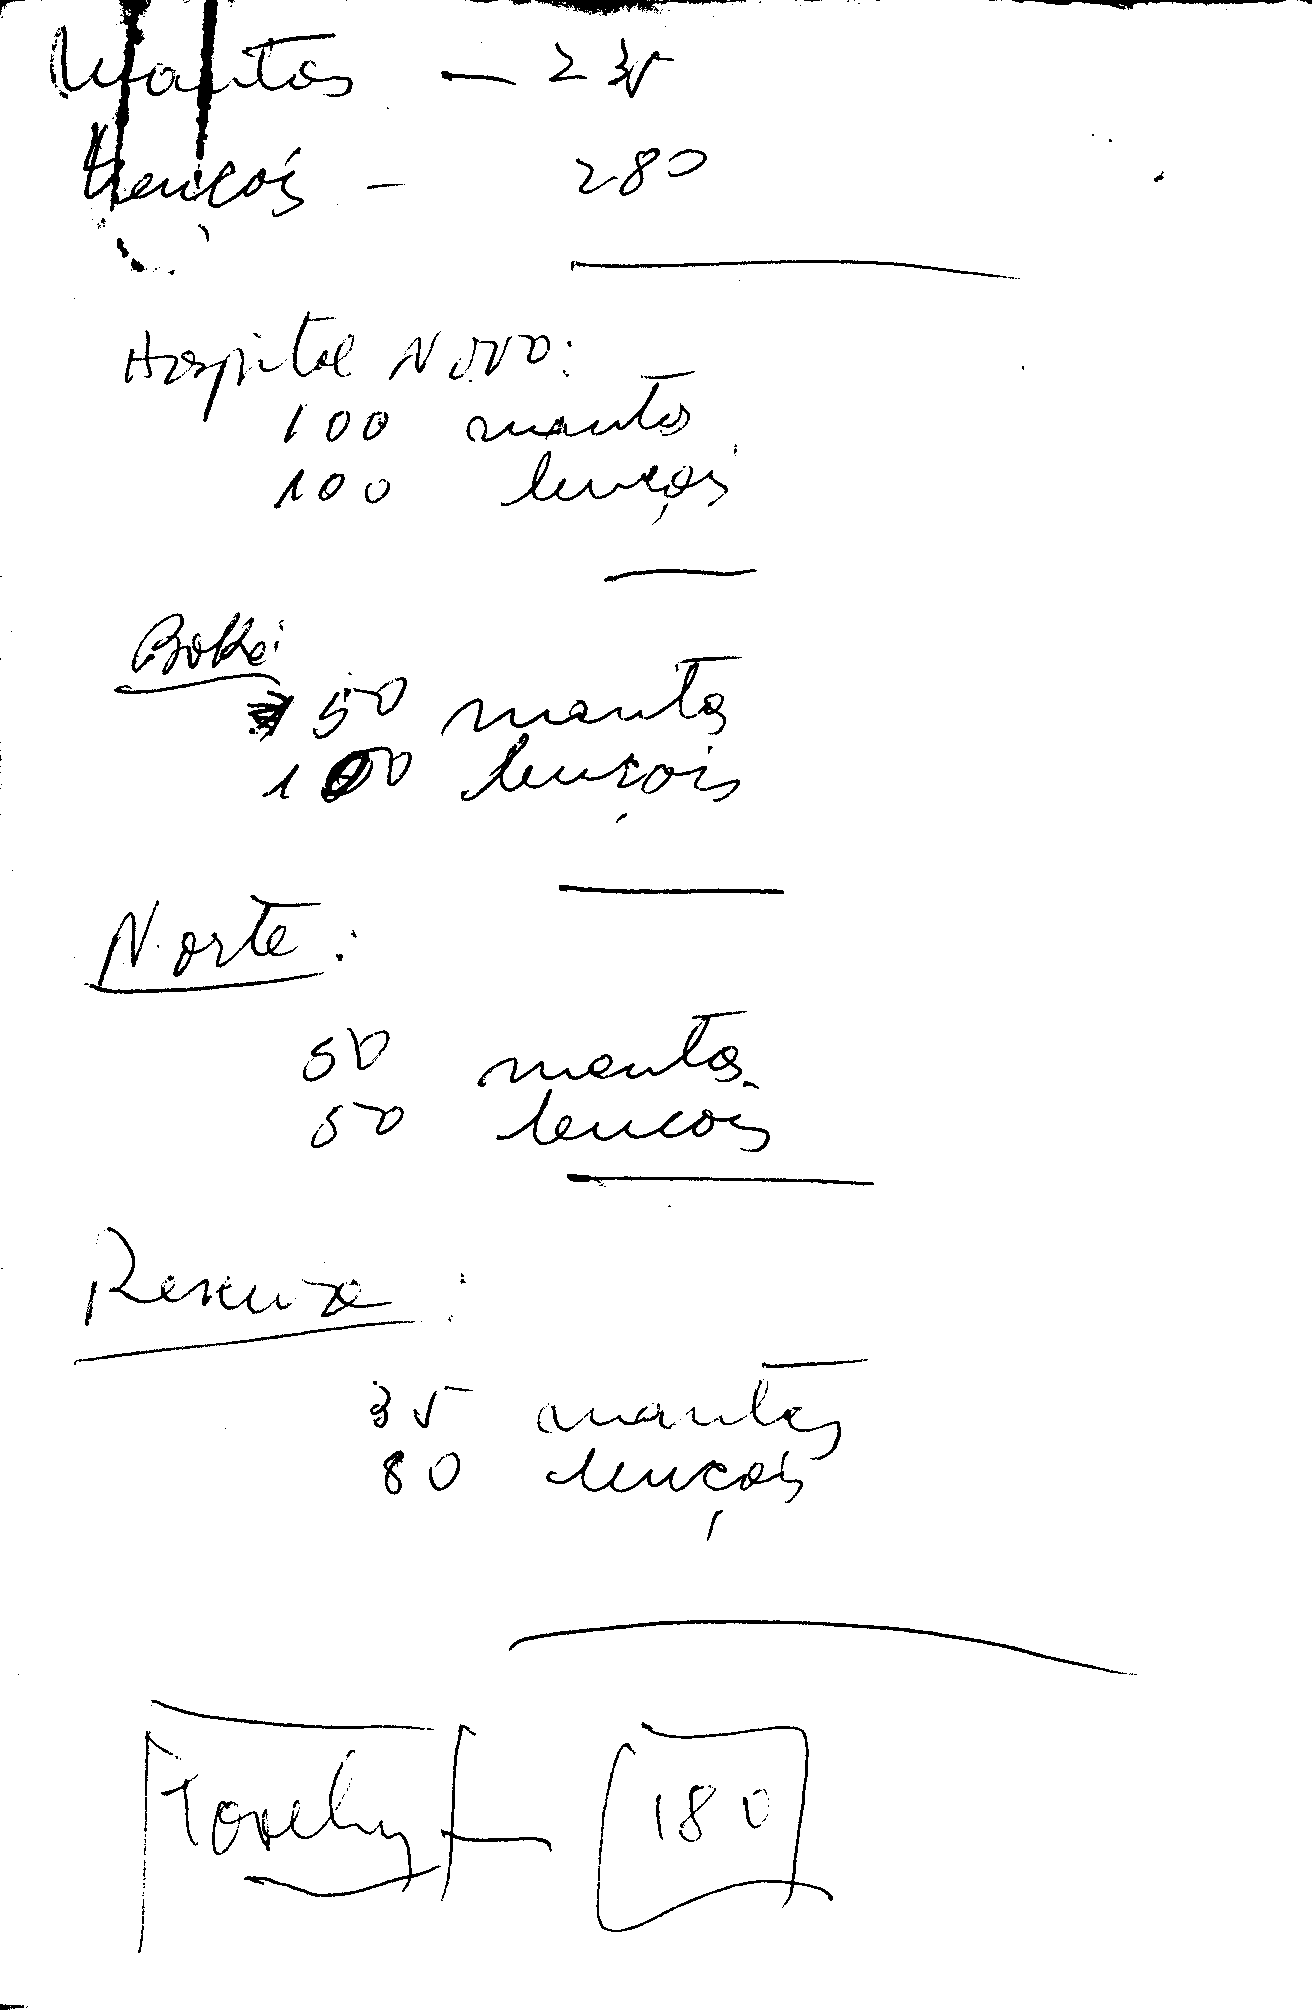 Mantas — 235
Lençóis — 280
Hospital Novo:
100 mantas
100 lençois
Boké:
50 mantas
100 lençois
Norte:
50 mantas
50 lencois
Reserva:
35 mantas
80 lençois
180